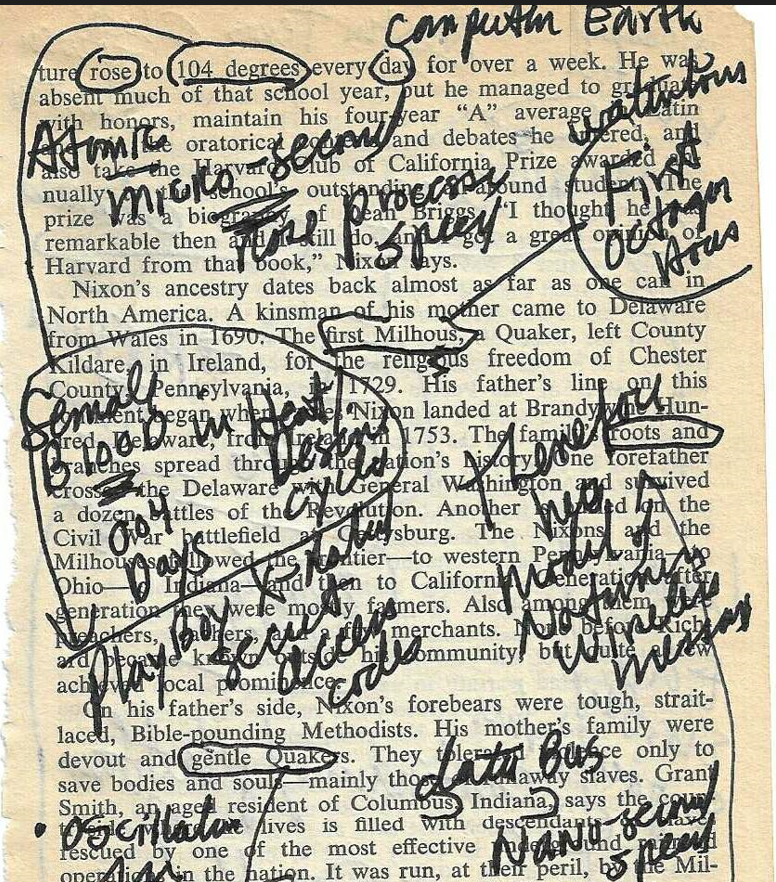 computer Earth
ture rose to 104 degrees every day for over a week. He was
absent much of that school year, but he managed to graduate
with honors, maintain his four-year "A" average Latin
the oratorical and debates he entered, and
Atomic
micro-second
also take the Harvard Club of California Prize awarded
nually the school's outstanding around student. The
First
octagon
prize was a biography of Dean Briggs. "I thought he was
Rose process
speed
remarkable then and still do, and got a great opinion of
Harvard from that book," Nixon says.
Nixon's ancestry dates back almost as far as one can in
North America. A kinsman of his mother came to Delaware
from Wales in 1690. The first Milhous, a Quaker, left County
Kildare, in Ireland, for the religious freedom of Chester
County, Pennsylvania, in 1729. His father's line on this
continent began when Nixon landed at Brandywine Hun-
dred, Delaware, from Ireland in 1753. The family's roots and
Blood in Heat
004
Days
branches spread through the nation's history. One forefather
crossed the Delaware with General Washington and survived
a dozen battles of the Revolution. Another on the
Civil War battlefield at Gettysburg. The Nixons and the
Milhouses followed the frontier—to western Pennsylvania—to
new
model of
wireless
Ohio—to Indiana—and then to California. Generation after
generation they were mostly farmers. Also among them were
preachers, teachers, and a few merchants. None before Rich-
ard became known outside his community, but quite a few
achieved local prominence.
Play Boy
secret
access
codes
On his father's side, Nixon's forebears were tough, strait-
laced, Bible-pounding Methodists. His mother's family were
devout and gentle Quakers. They tolerated violence only to
save bodies and souls—mainly those of runaway slaves. Grant
Smith, an aged resident of Columbus, Indiana, says the coun-
lives is filled with descendants
rescued by one of the most effective underground
operations in the nation. It was run, at their peril, by the Mil-
data Bus
Nano-second
speed
• oscillator